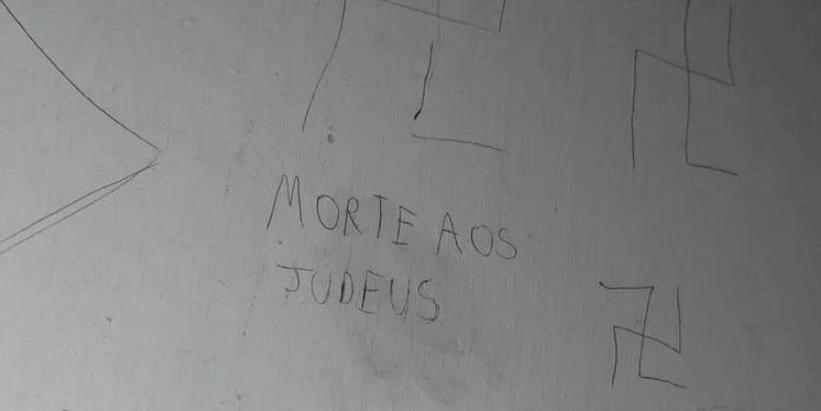 MORTE AOS
JUDEUS